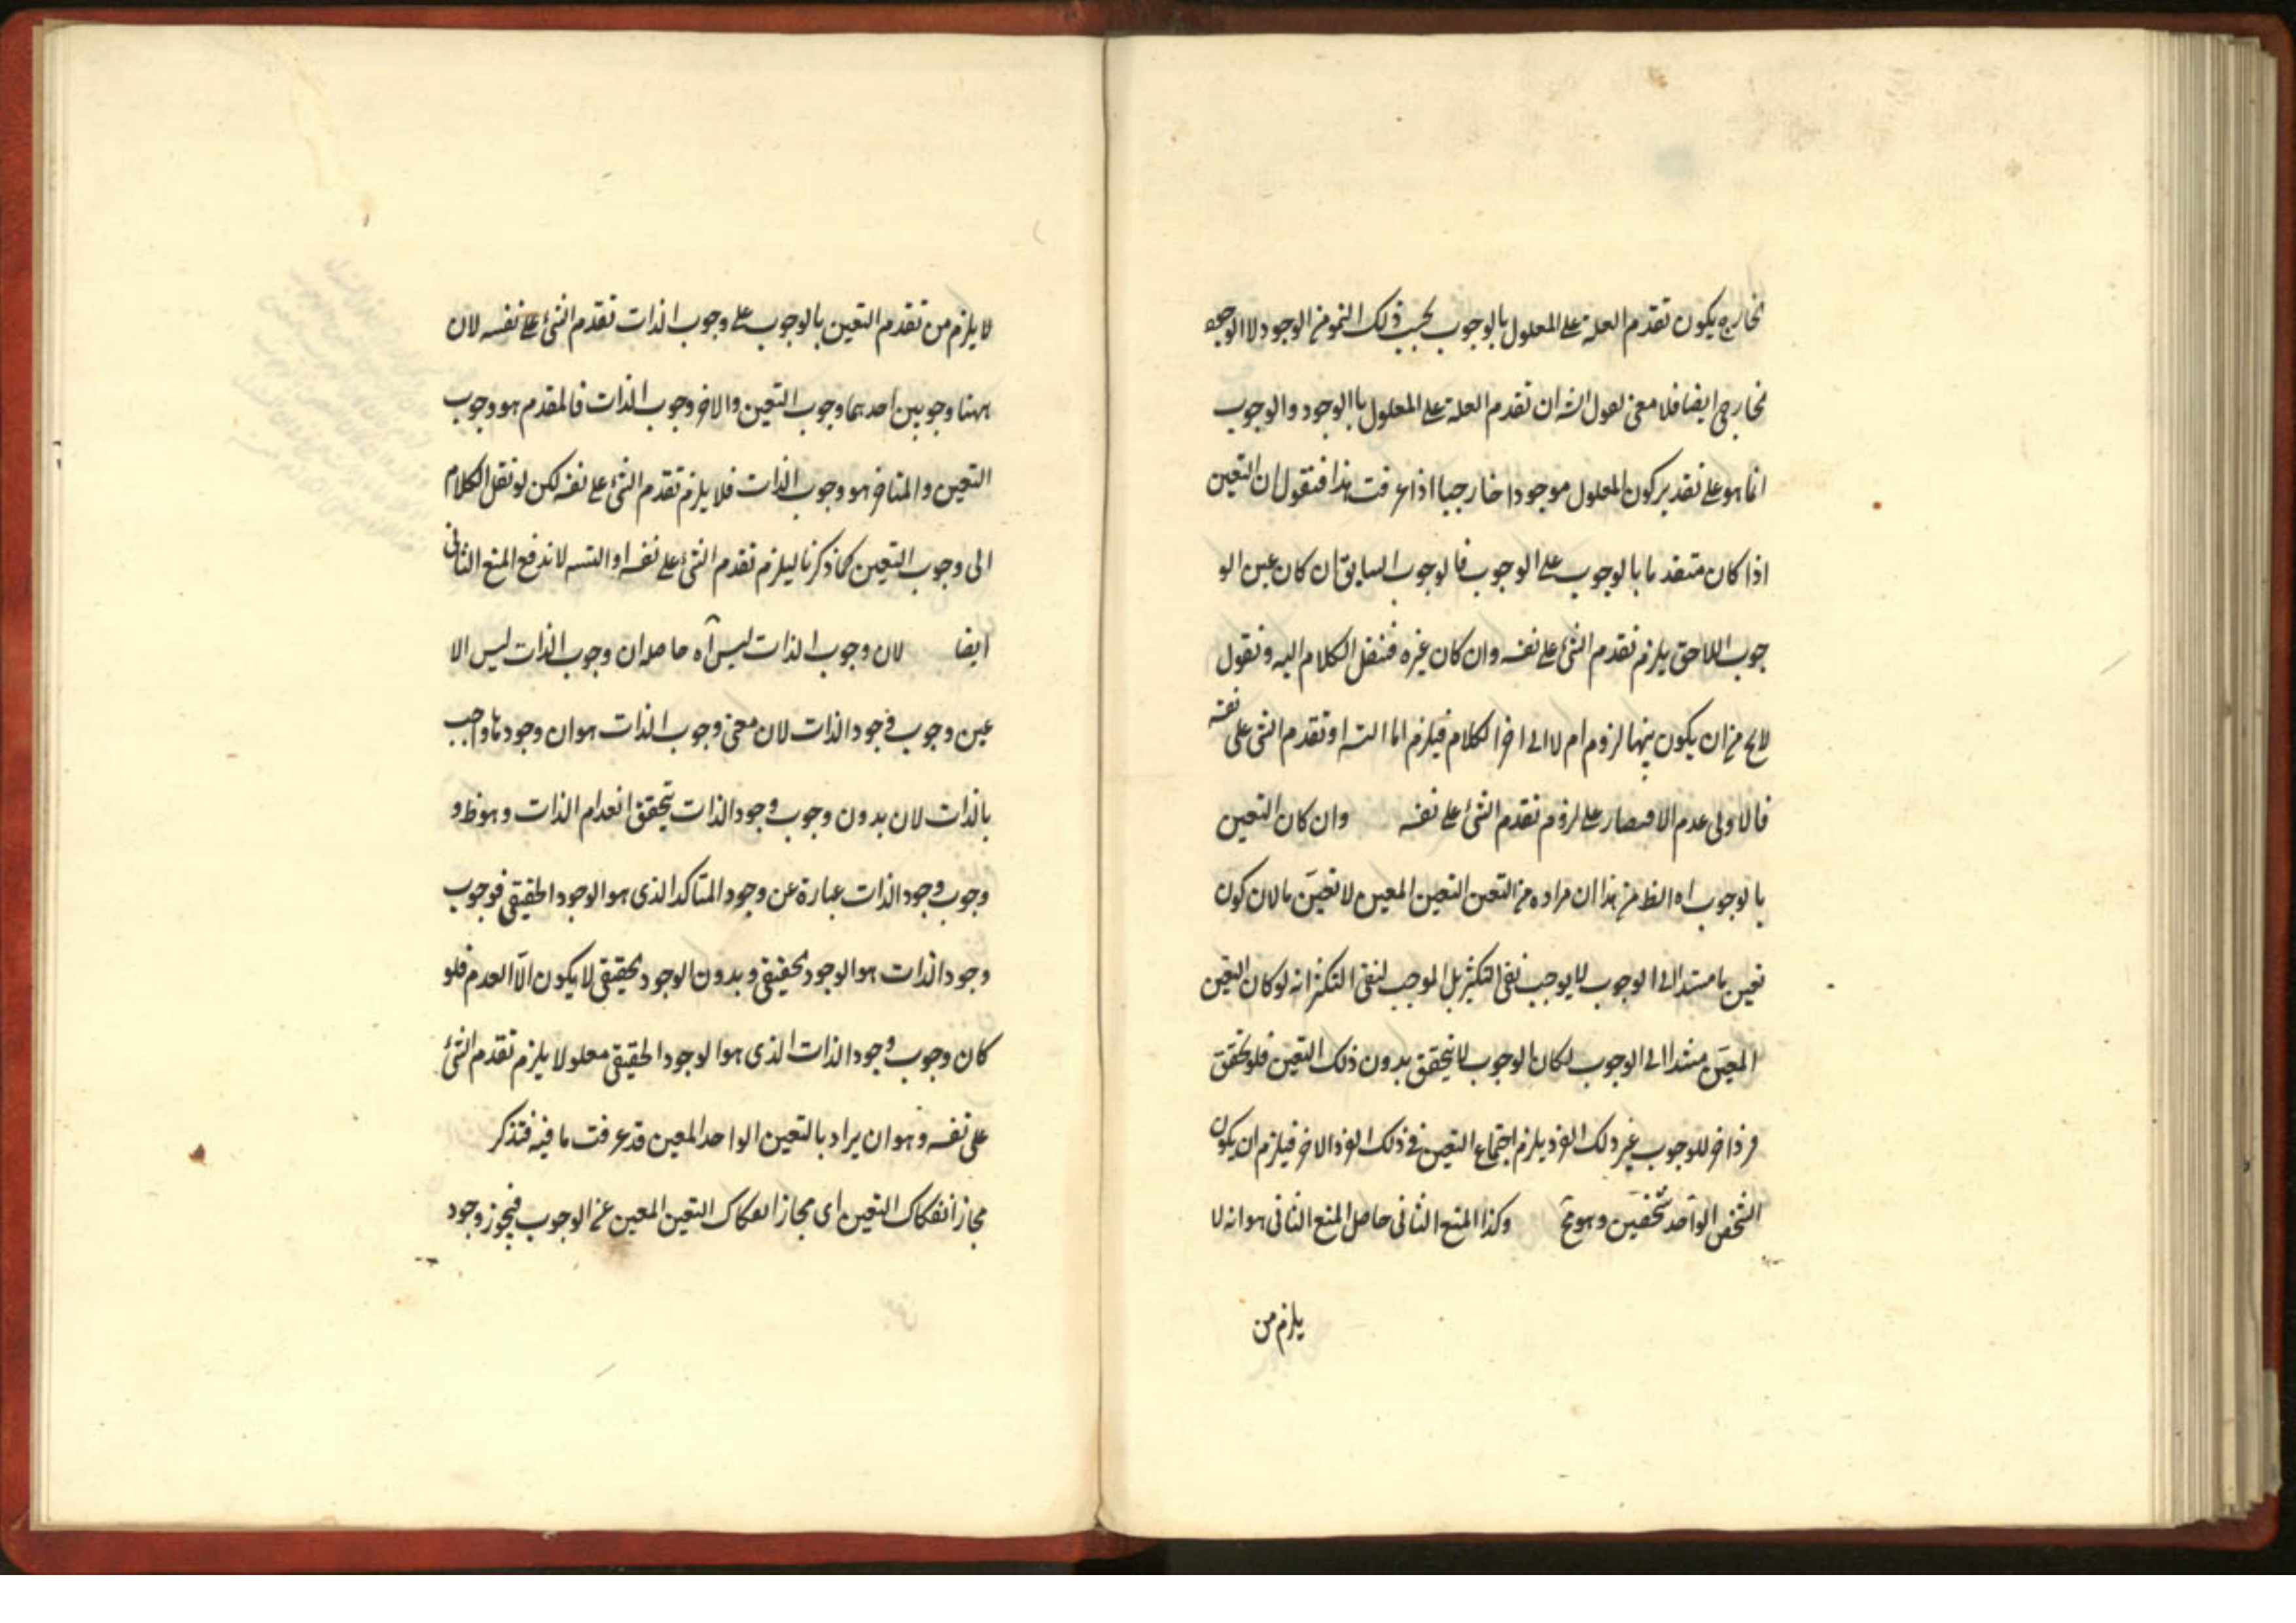 خارج ويكون تقدم العلة على المعلول بالوجوب بحسب ذلك النحو من الوجود لا الوجود
لخارجي ايضا فلا معنى لقول الش ان تقدم العلة على المعلول باالوجود والوجوب
انما هو على تقدير كون المعلول موجودا خارجيا اذا عرفت هذا فنقول ان التعين
اذا كان متقدما بالوجوب على الوجوب فالوجوب السابق ان كان عين الو
جوب اللاحق يلزم تقدم الشئ على نفسه وان كان غيره فننقل الكلام اليه ونقول
لا يخ من ان يكون بينهما لزوم ام لا الى اخر الكلام فيلزم اما التسه او تقدم الشئ على نفسه
فالاولى عدم الاقتصار على لزوم تقدم الشئ على نفسه وان كان التعين
بالوجوب اه الظ من هذا ان مراده من التعين التعين المعين لا تعين ما لان كون
تعين ما مستندا الى الوجوب لا يوجب نفى التكثر بل الموجب لنفى التكثر انه لو كان التعين
المعين مستندا الى الوجوب لكان الوجوب لا يتحقق بدون ذلك التعين فلو تحقق
فرد اخر للوجوب غير ذلك الفرد يلزم اجتماع التعين في ذلك الفرد الاخر فيلزم ان يكون
الشخص الواحد شخصين وهو مح وكذا المنع الثانى حاصل المنع الثانى هو انه لا
يلزم من
لا يلزم من تقدم التعين بالوجوب على وجوب الذات تقدم الشئ على نفسه لان
ههنا وجوبين احدهما وجوب التعين والاخر وجوب الذات فالمقدم هو وجوب
التعين والمتاخر هو وجوب الذات فلا يلزم تقدم الشئ على نفسه لكن لو نقل الكلام
الى وجوب التعين كما ذكرنا ليلزم تقدم الشئ على نفسه او التسه لاندفع المنع الثانى
ايضا لان وجوب الذات ليس آه حاصله ان وجوب الذات ليس الا
عين وجوب وجود الذات لان معنى وجوب الذات هو ان وجودها واجب
بالذات لان بدون وجوب وجود الذات يتحقق انعدام الذات وهو ظ و
وجوب وجود الذات عبارة عن وجود المتاكد الذى هو الوجود الحقيقى فوجوب
وجود الذات هو الوجود الحقيقى وبدون الوجود الحقيقى لا يكون الّا العدم فلو
كان وجوب وجود الذات الذى هو الوجود الحقيقى معلولا يلزم تقدم الشئ
على نفسه وهو ان يراد بالتعين الواحد المعين قد عرفت ما فيه فتذكر
مجاز انفكاك التعين اى مجاز انفكاك التعين المعين عن الوجوب فيجوز وجود